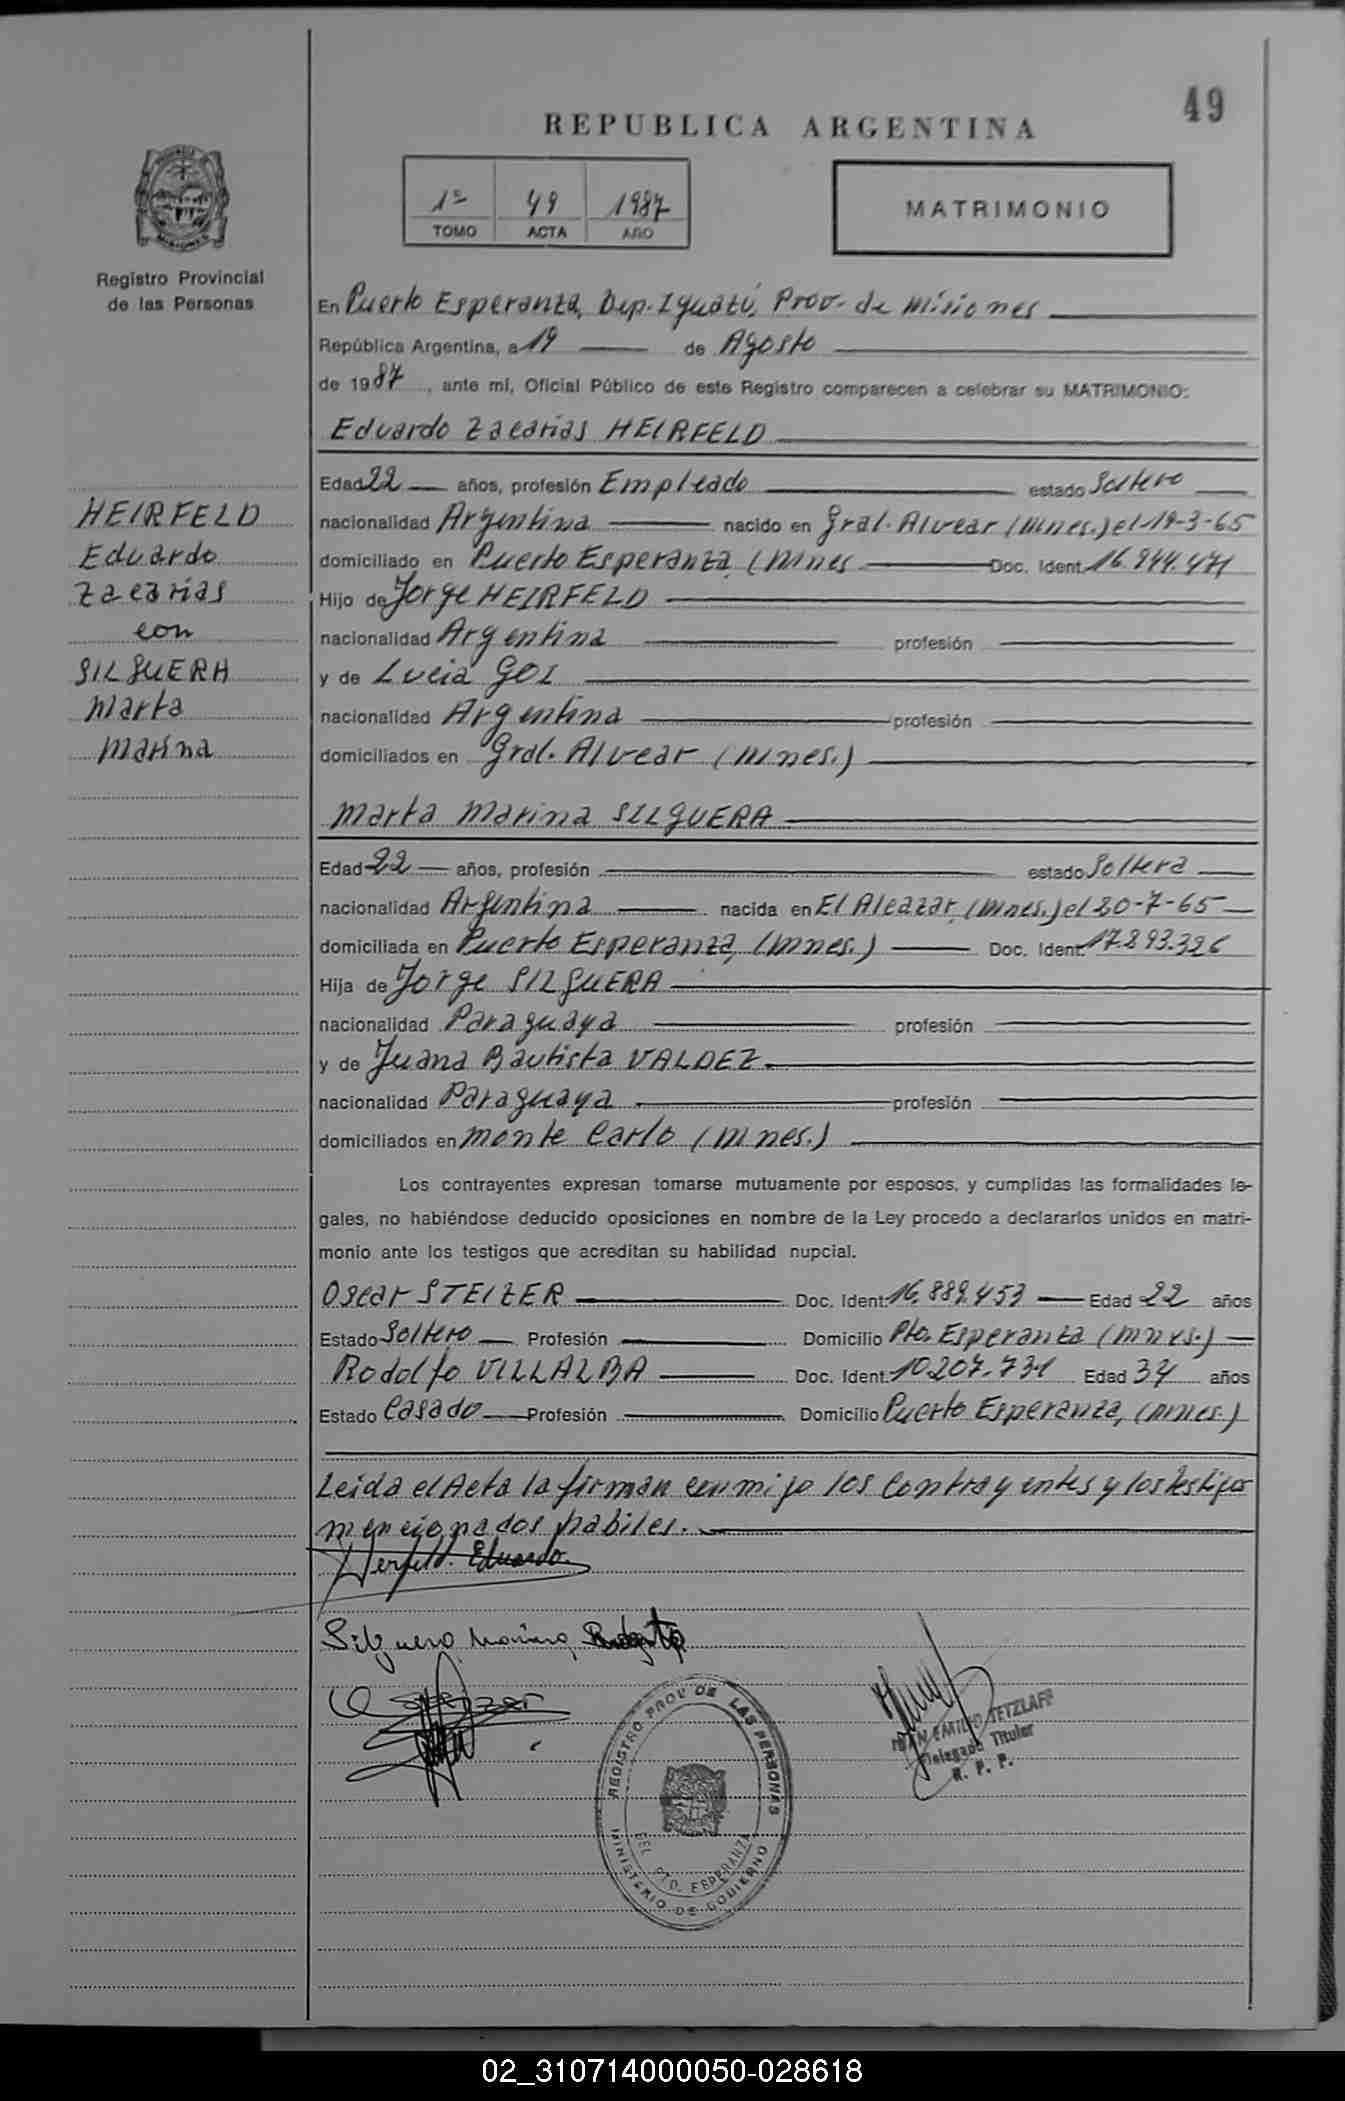 49
REPUBLICA ARGENTINA
1º 49 1987
TOMO ACTA AÑO
MATRIMONIO
Registro Provincial
de las Personas
En Puerto Esperanza, Dep. Iguazú, Prov. de Misiones
República Argentina, a 19 de Agosto
de 1987, ante mí, Oficial Público de este Registro comparecen a celebrar su MATRIMONIO:
Eduardo Zacarias HEIRFELD
Edad 22 años, profesión Empleado estado Soltero
nacionalidad Argentina nacido en Gral. Alvear (Mnes.) el 19-3-65
domiciliado en Puerto Esperanza, (Mnes Doc. Ident. 16.944.471
Hijo de Jorge HEIRFELD
nacionalidad Argentina profesión
y de Lucia GOL
nacionalidad Argentina profesión
domiciliados en Gral. Alvear (Mnes.)
HEIRFELD
Eduardo
Zacarias
con
SILGUERA
Marta
Marina
Marta Marina SILGUERA
Edad 22 años, profesión estado Soltera
nacionalidad Argentina nacida en El Alcazar, (Mnes.) el 20-7-65
domiciliada en Puerto Esperanza, (Mnes.) Doc. Ident. 17.893.326
Hija de Jorge SILGUERA
nacionalidad Paraguaya profesión
y de Juana Bautista VALDEZ.
nacionalidad Paraguaya profesión
domiciliados en Monte Carlo (Mnes.)
Los contrayentes expresan tomarse mutuamente por esposos, y cumplidas las formalidades le-
gales, no habiéndose deducido oposiciones en nombre de la Ley procedo a declararlos unidos en matri-
monio ante los testigos que acreditan su habilidad nupcial.
Oscar STEIZER Doc. Ident. 16.889.453 Edad 22 años
Estado Soltero Profesión Domicilio Pto. Esperanza (Mnes.)
Rodolfo VILLALBA Doc. Ident. 10.207.731 Edad 34 años
Estado Casado Profesión Domicilio Puerto Esperanza, (Mnes.)
Leida el Acta la firman conmigo los Contrayentes y los testigos
mencionados habiles.
Herfeld. Eduardo.
Silguero Marina,
REGISTRO PROV DE LAS PERSONAS
DEL PTO. ESPERANZA
MINISTERIO DE GOBIERNO
EMILIO TETZLAFF
Delegado Titular
R. P. P.
02_310714000050-028618